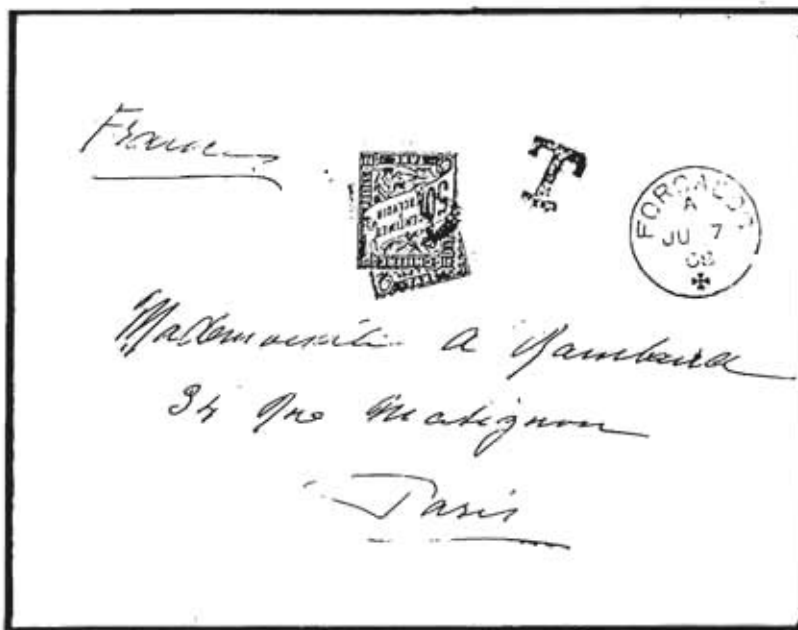 France
T
FORCADOS
A
JU 7
Mademoiselle A
34 Rue Matignon
Paris